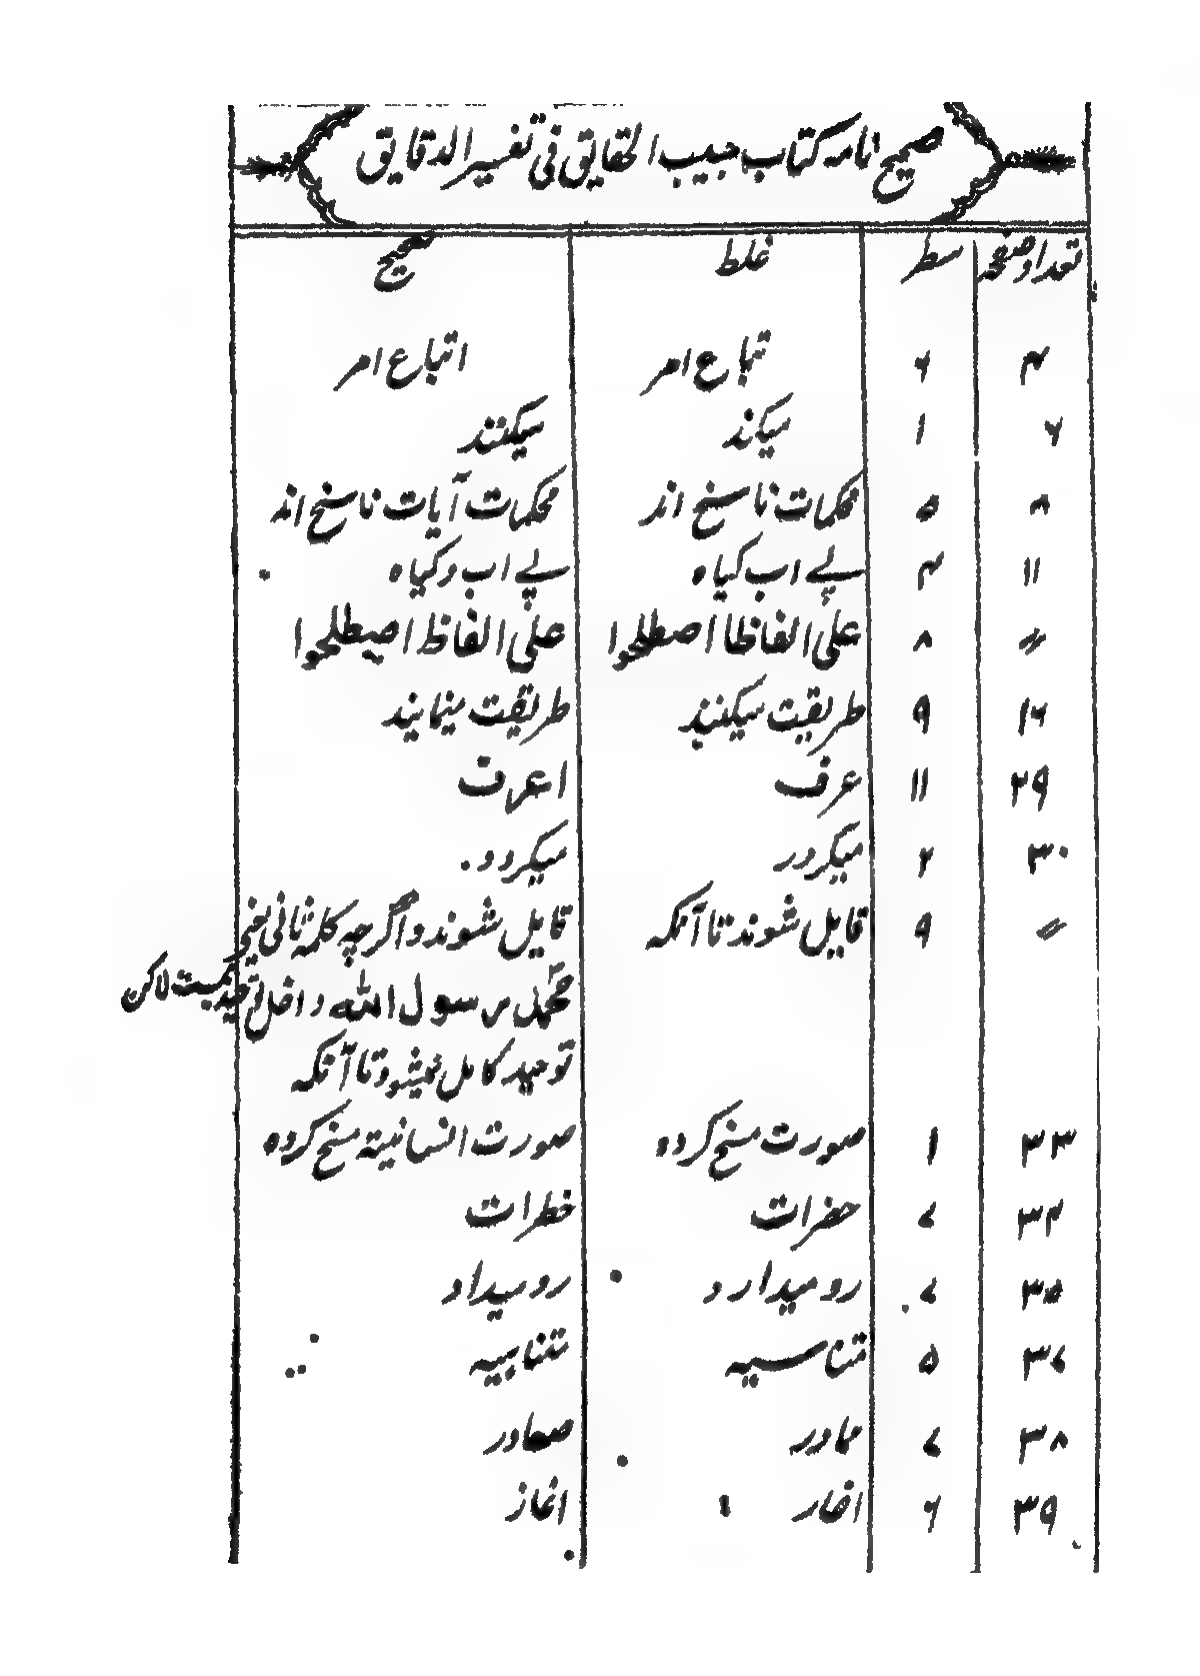 صحیح نامه کتاب حبیب الحقایق فی تفسیر الدقایق
تعداد صفحه سطر غلط صحیح
۴ ۶ تباع امر اتباع امر
۶ ۱ میکند میکنند
۸ ۵ محکمات ناسخ اند محکمات آیات ناسخ اند
۱۱ ۴ بے اب کیاه بے اب و کیاه
〃 ۸ علی الفاظا اصطلحوا علی الفاظ اصطلحوا
۱۶ ۹ طریقت میکنند طریقت مینمایند
۲۹ ۱۱ عرف اعرف
۳۰ ۲ میکردر میکردد
〃 ۹ قایل شوند تا آنکه قایل شوند و اگرچه کلمه ثانی یعنی
محمد رسول الله داخل توحید نیست لاکن
توحید کامل نمیشود تا آنکه
۳۳ ۱ صورت مسخ کرده صورت انسانیة مسخ کرده
۳۴ ۷ حضرات خطرات
۳۵ ۷ رو میدارد رو میداد
۳۷ ۵ تناسیه
۳۸ ۷ صادر
۳۹ ۶ اغاز